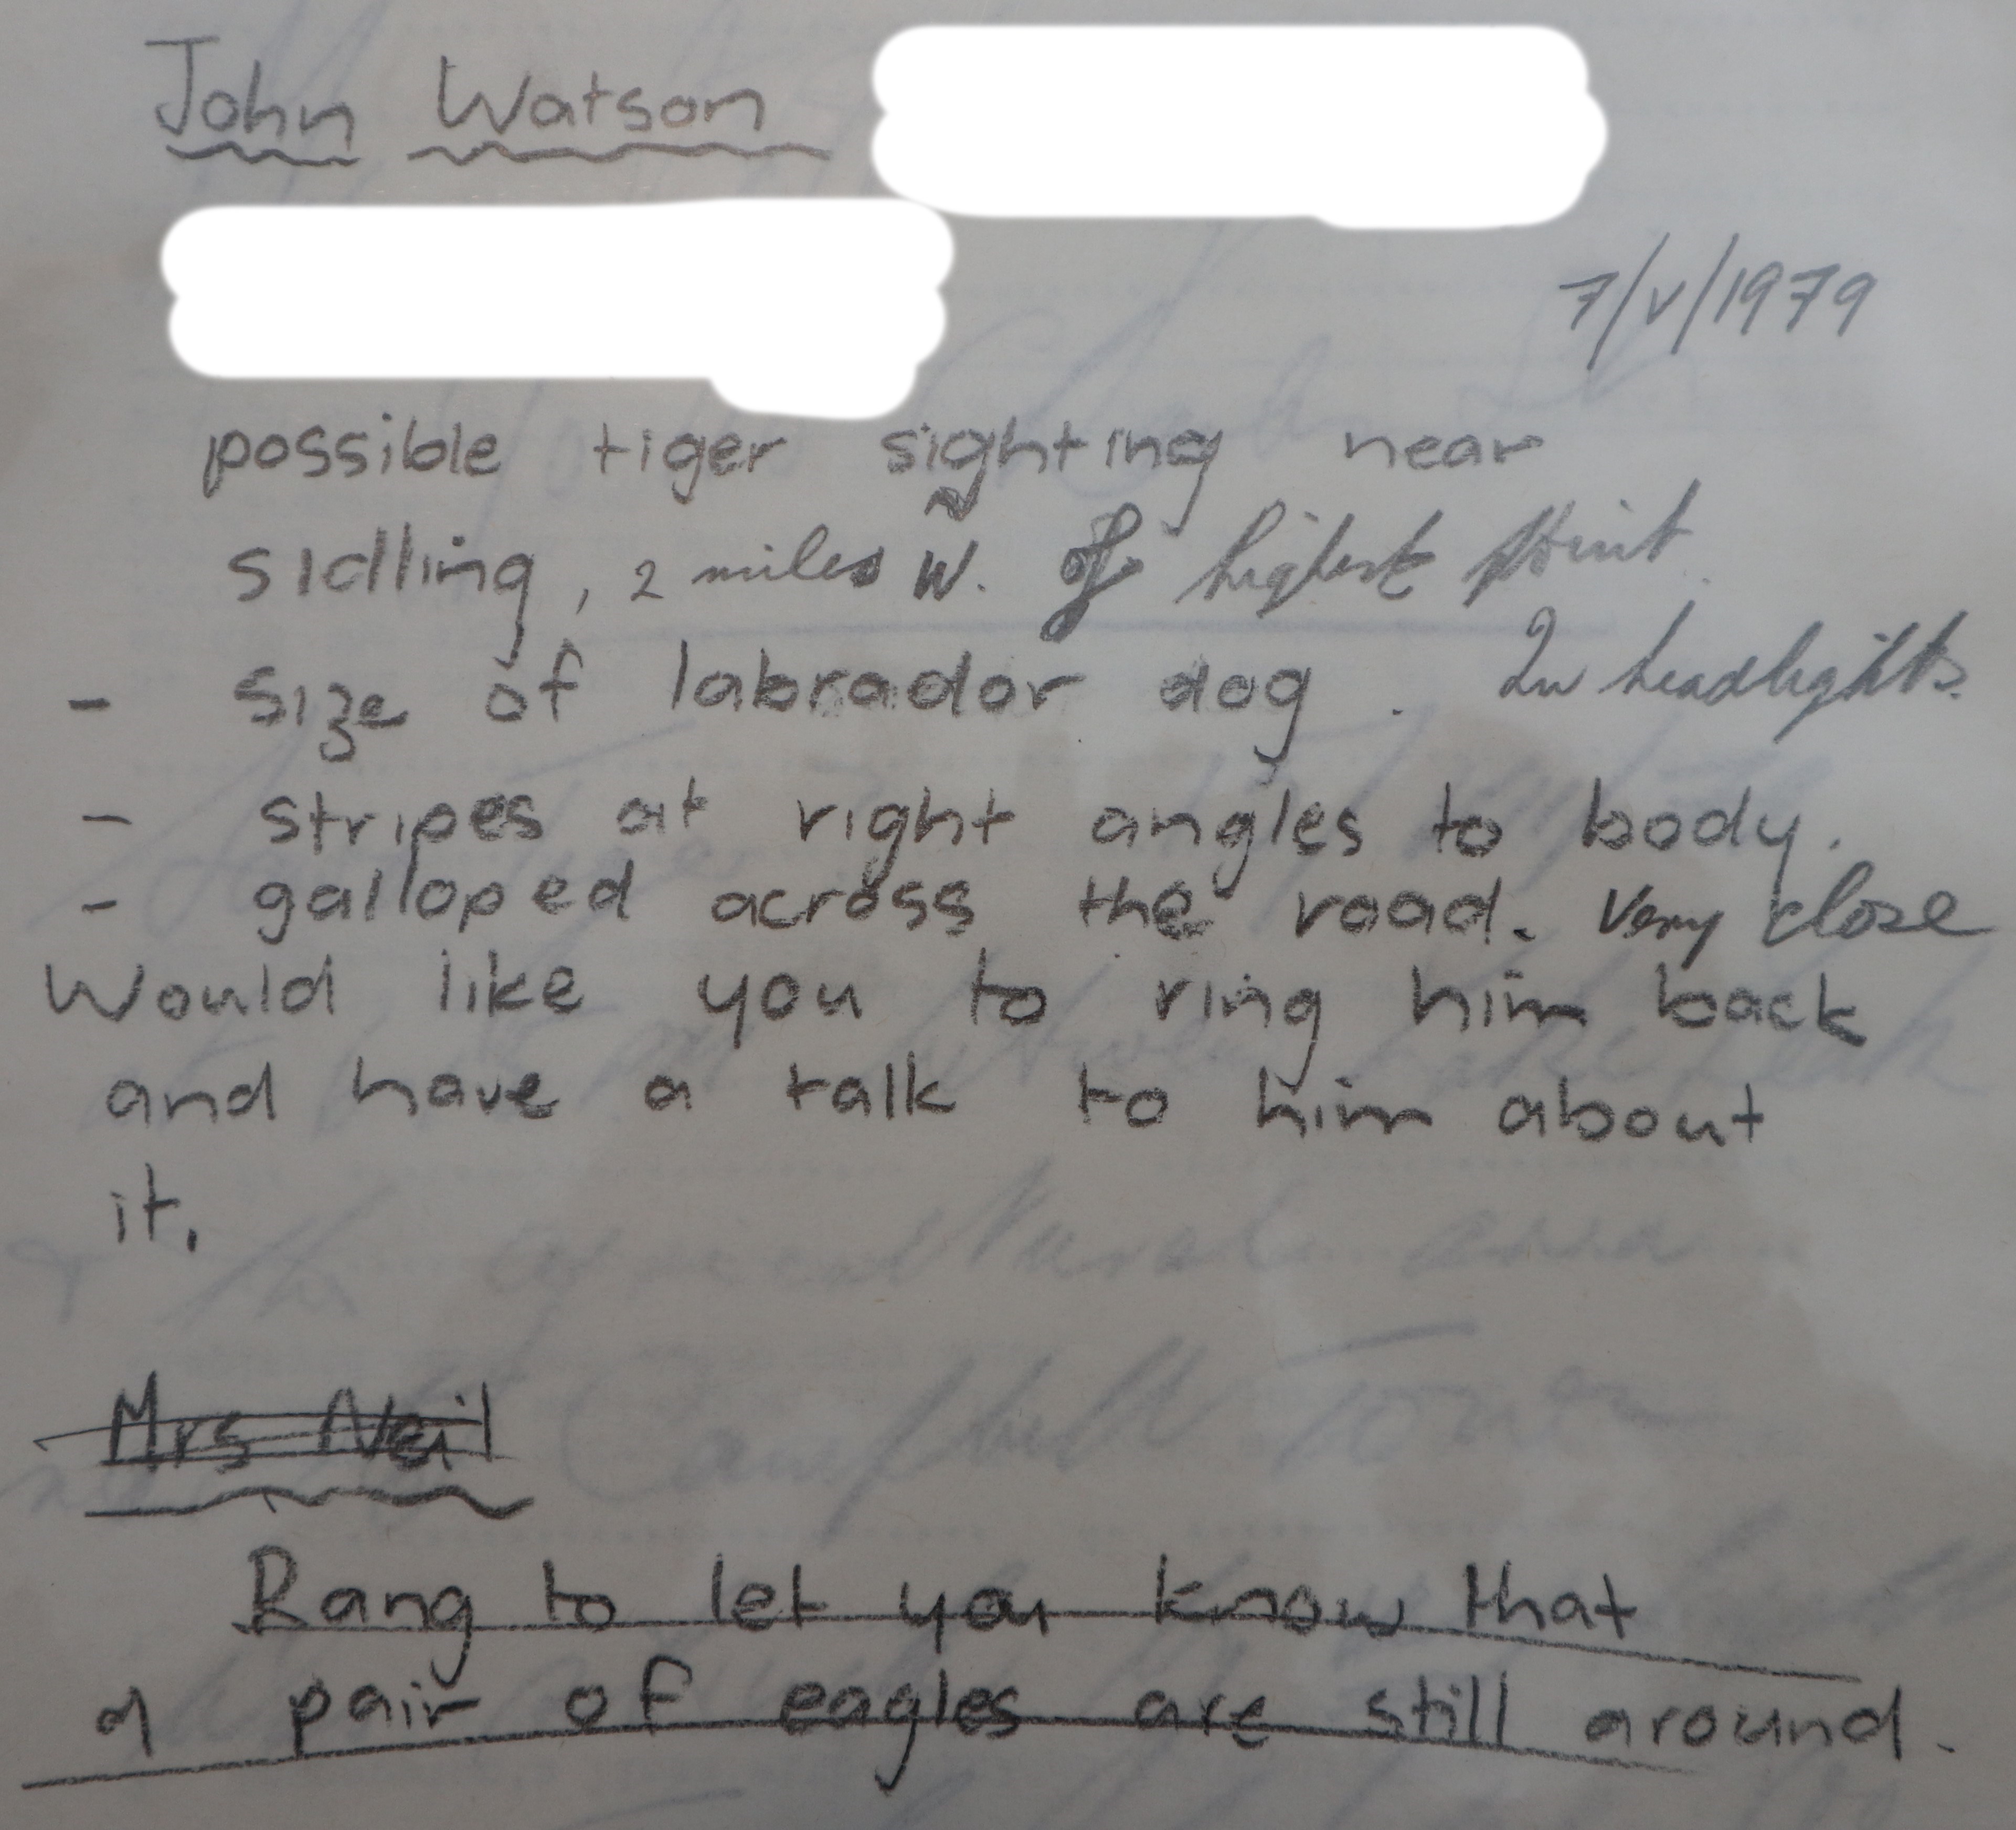 John Watson
7/V/1979
possible tiger sighting near
sidling, 2 miles W. of highest point.
- size of labrador dog. In headlights.
- stripes at right angles to body.
- galloped across the road. Very close
Would like you to ring him back
and have a talk to him about
it.
Mrs Neil
Rang to let you know that
a pair of eagles are still around.